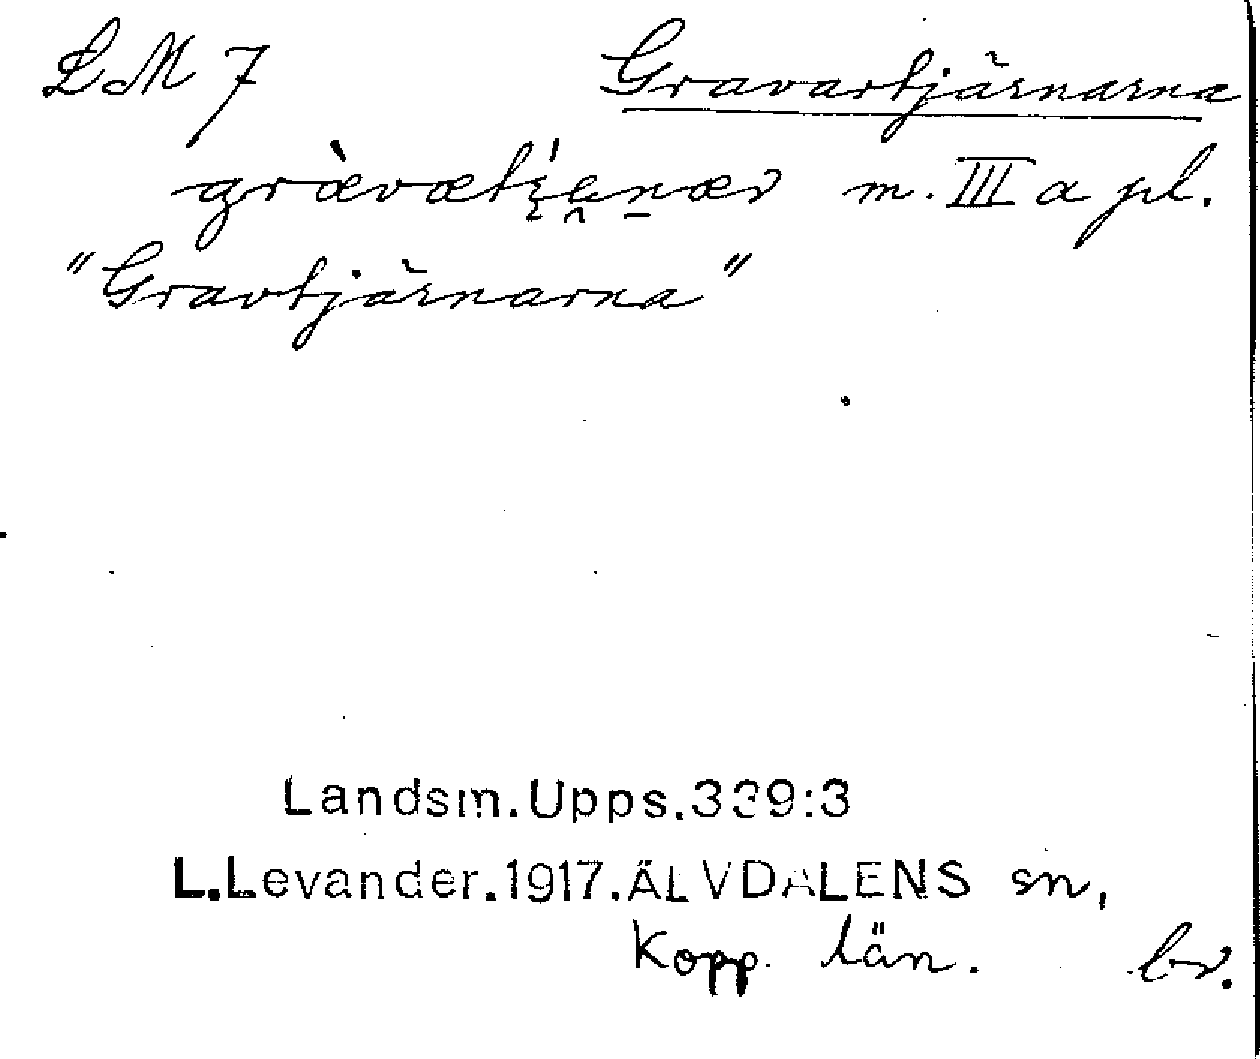 LM 7 Gravartjärnarna
m. III a pl.
"Gravtjärnarna"
Landsm.Upps.339:3
L.Levander.1917.ÄLVDALENS sn,
Kopp. län. br.